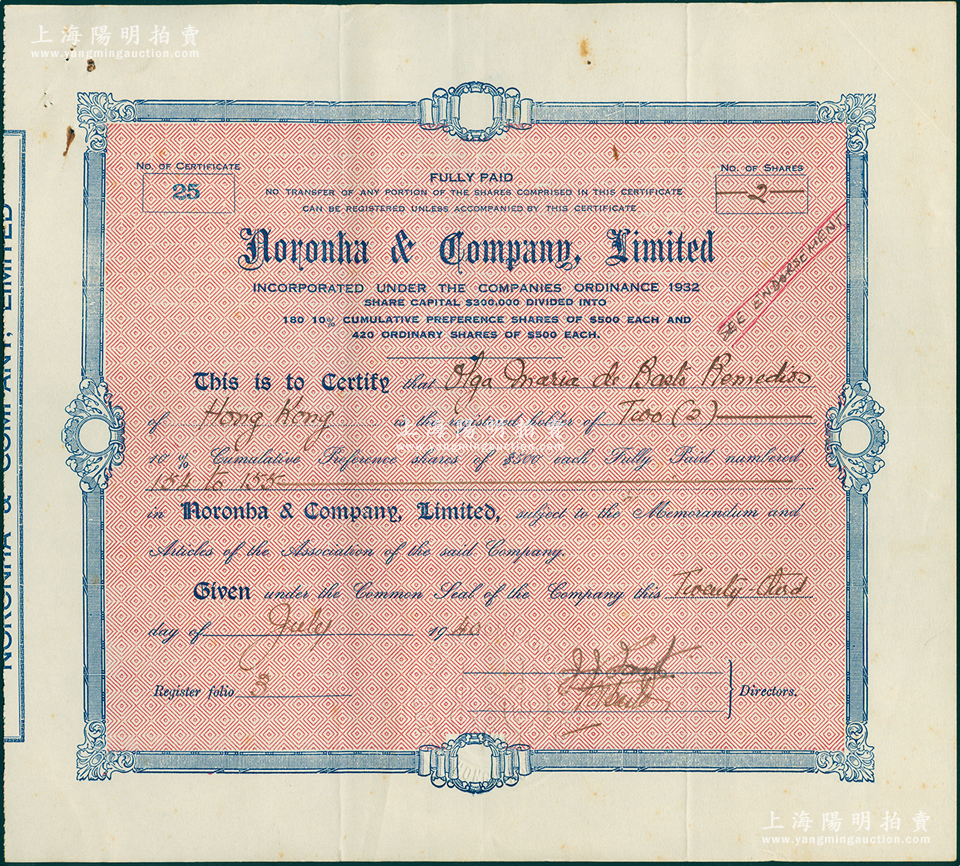 上海陽明拍賣
www.yangmingauction.com
NORONHA & COMPANY, LIMITED
No. of Certificate
25
FULLY PAID
No. of Shares
2
NO TRANSFER OF ANY PORTION OF THE SHARES COMPRISED IN THIS CERTIFICATE
CAN BE REGISTERED UNLESS ACCOMPANIED BY THIS CERTIFICATE
Noronha & Company, Limited
INCORPORATED UNDER THE COMPANIES ORDINANCE 1932
SHARE CAPITAL $300,000 DIVIDED INTO
180 10% CUMULATIVE PREFERENCE SHARES OF $500 EACH AND
420 ORDINARY SHARES OF $500 EACH.
SEE ENDORSEMEN
This is to Certify that Olga Maria de Basto Remedios
of Hong Kong is the registered holder of Two (2)
上海陽明拍賣
10% Cumulative Preference shares of $500 each Fully Paid numbered
154 to 155
in Noronha & Company, Limited, subject to the Memorandum and
Articles of the Association of the said Company.
Given under the Common Seal of the Company this Twenty-third
day of July 1940
Register folio 3
Directors.
上海陽明拍賣
www.yangmingauction.com